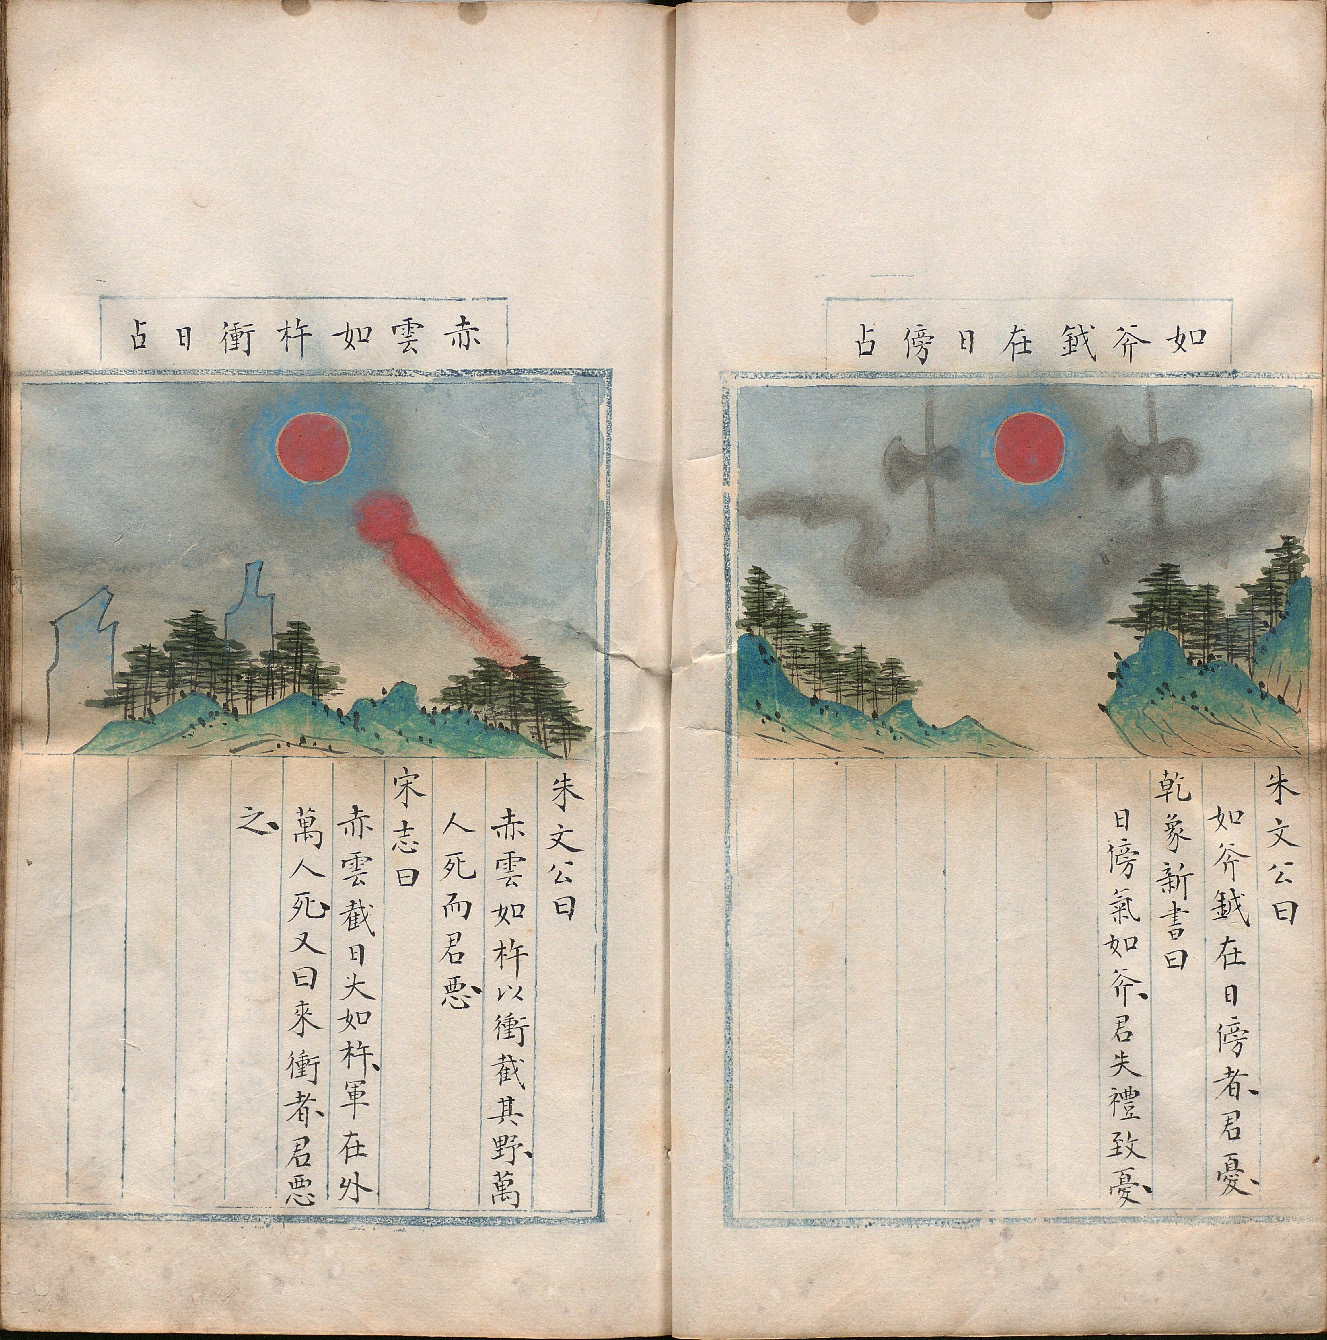 如斧鉞在日傍占
朱文公曰
如斧鉞在日傍者君憂
乾象新書曰
日傍氣如斧君失禮致憂
赤雲如杵衝日占
朱文公曰
赤雲如杵以衝截其野萬
人死而君惡
宋志曰
赤雲截日大如杵軍在外
萬人死又曰來衝者君惡
之